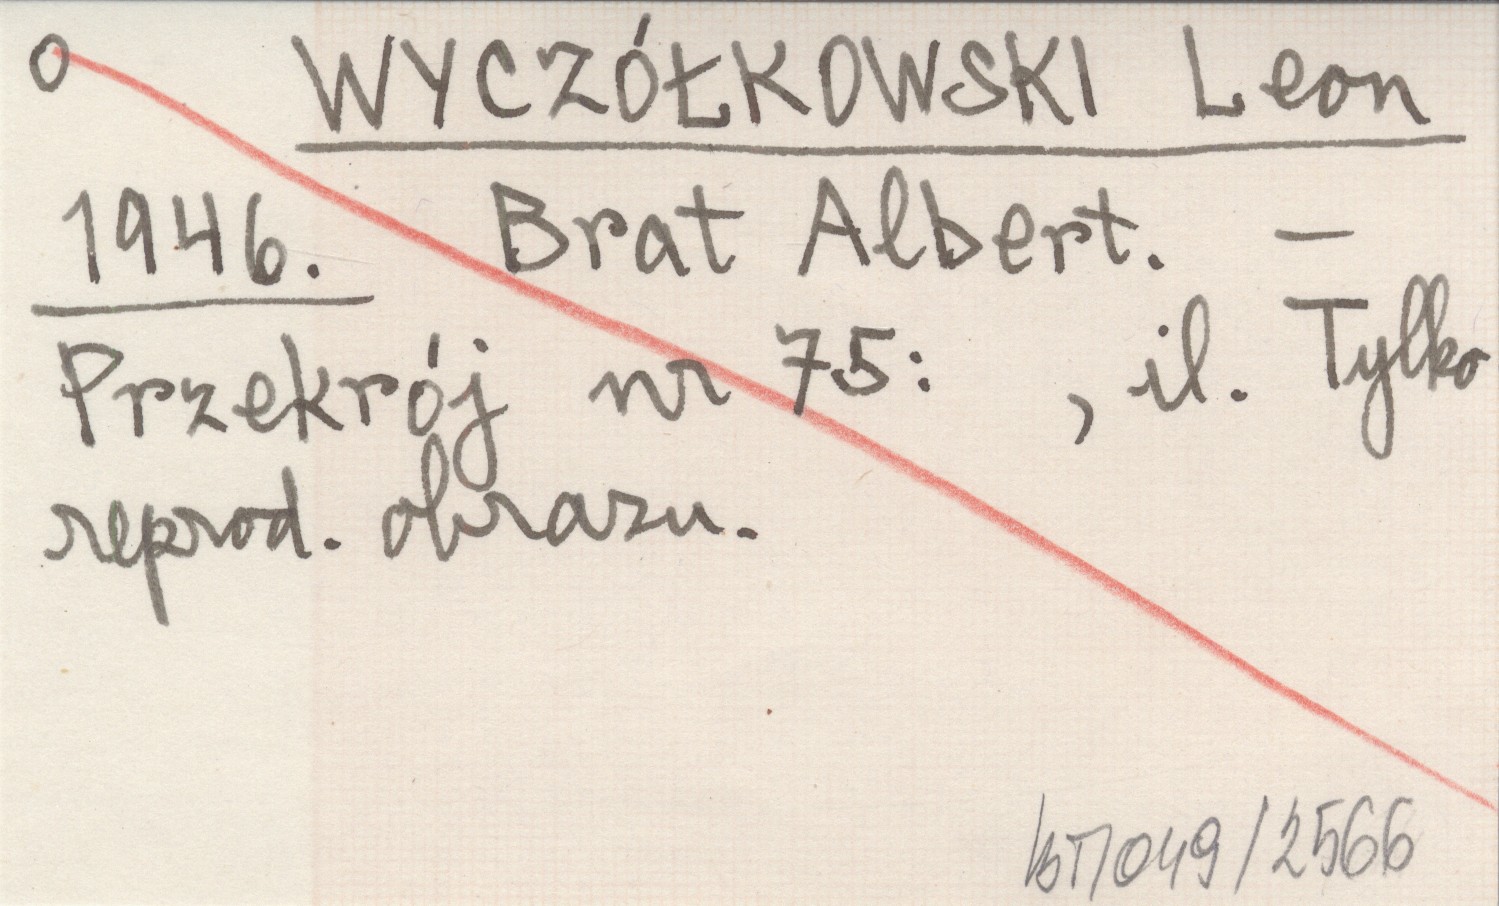 O WYCZÓŁKOWSKI Leon
1946. Brat Albert. —
Przekrój nr 75: , il. Tylko
reprod. obrazu.
/2566